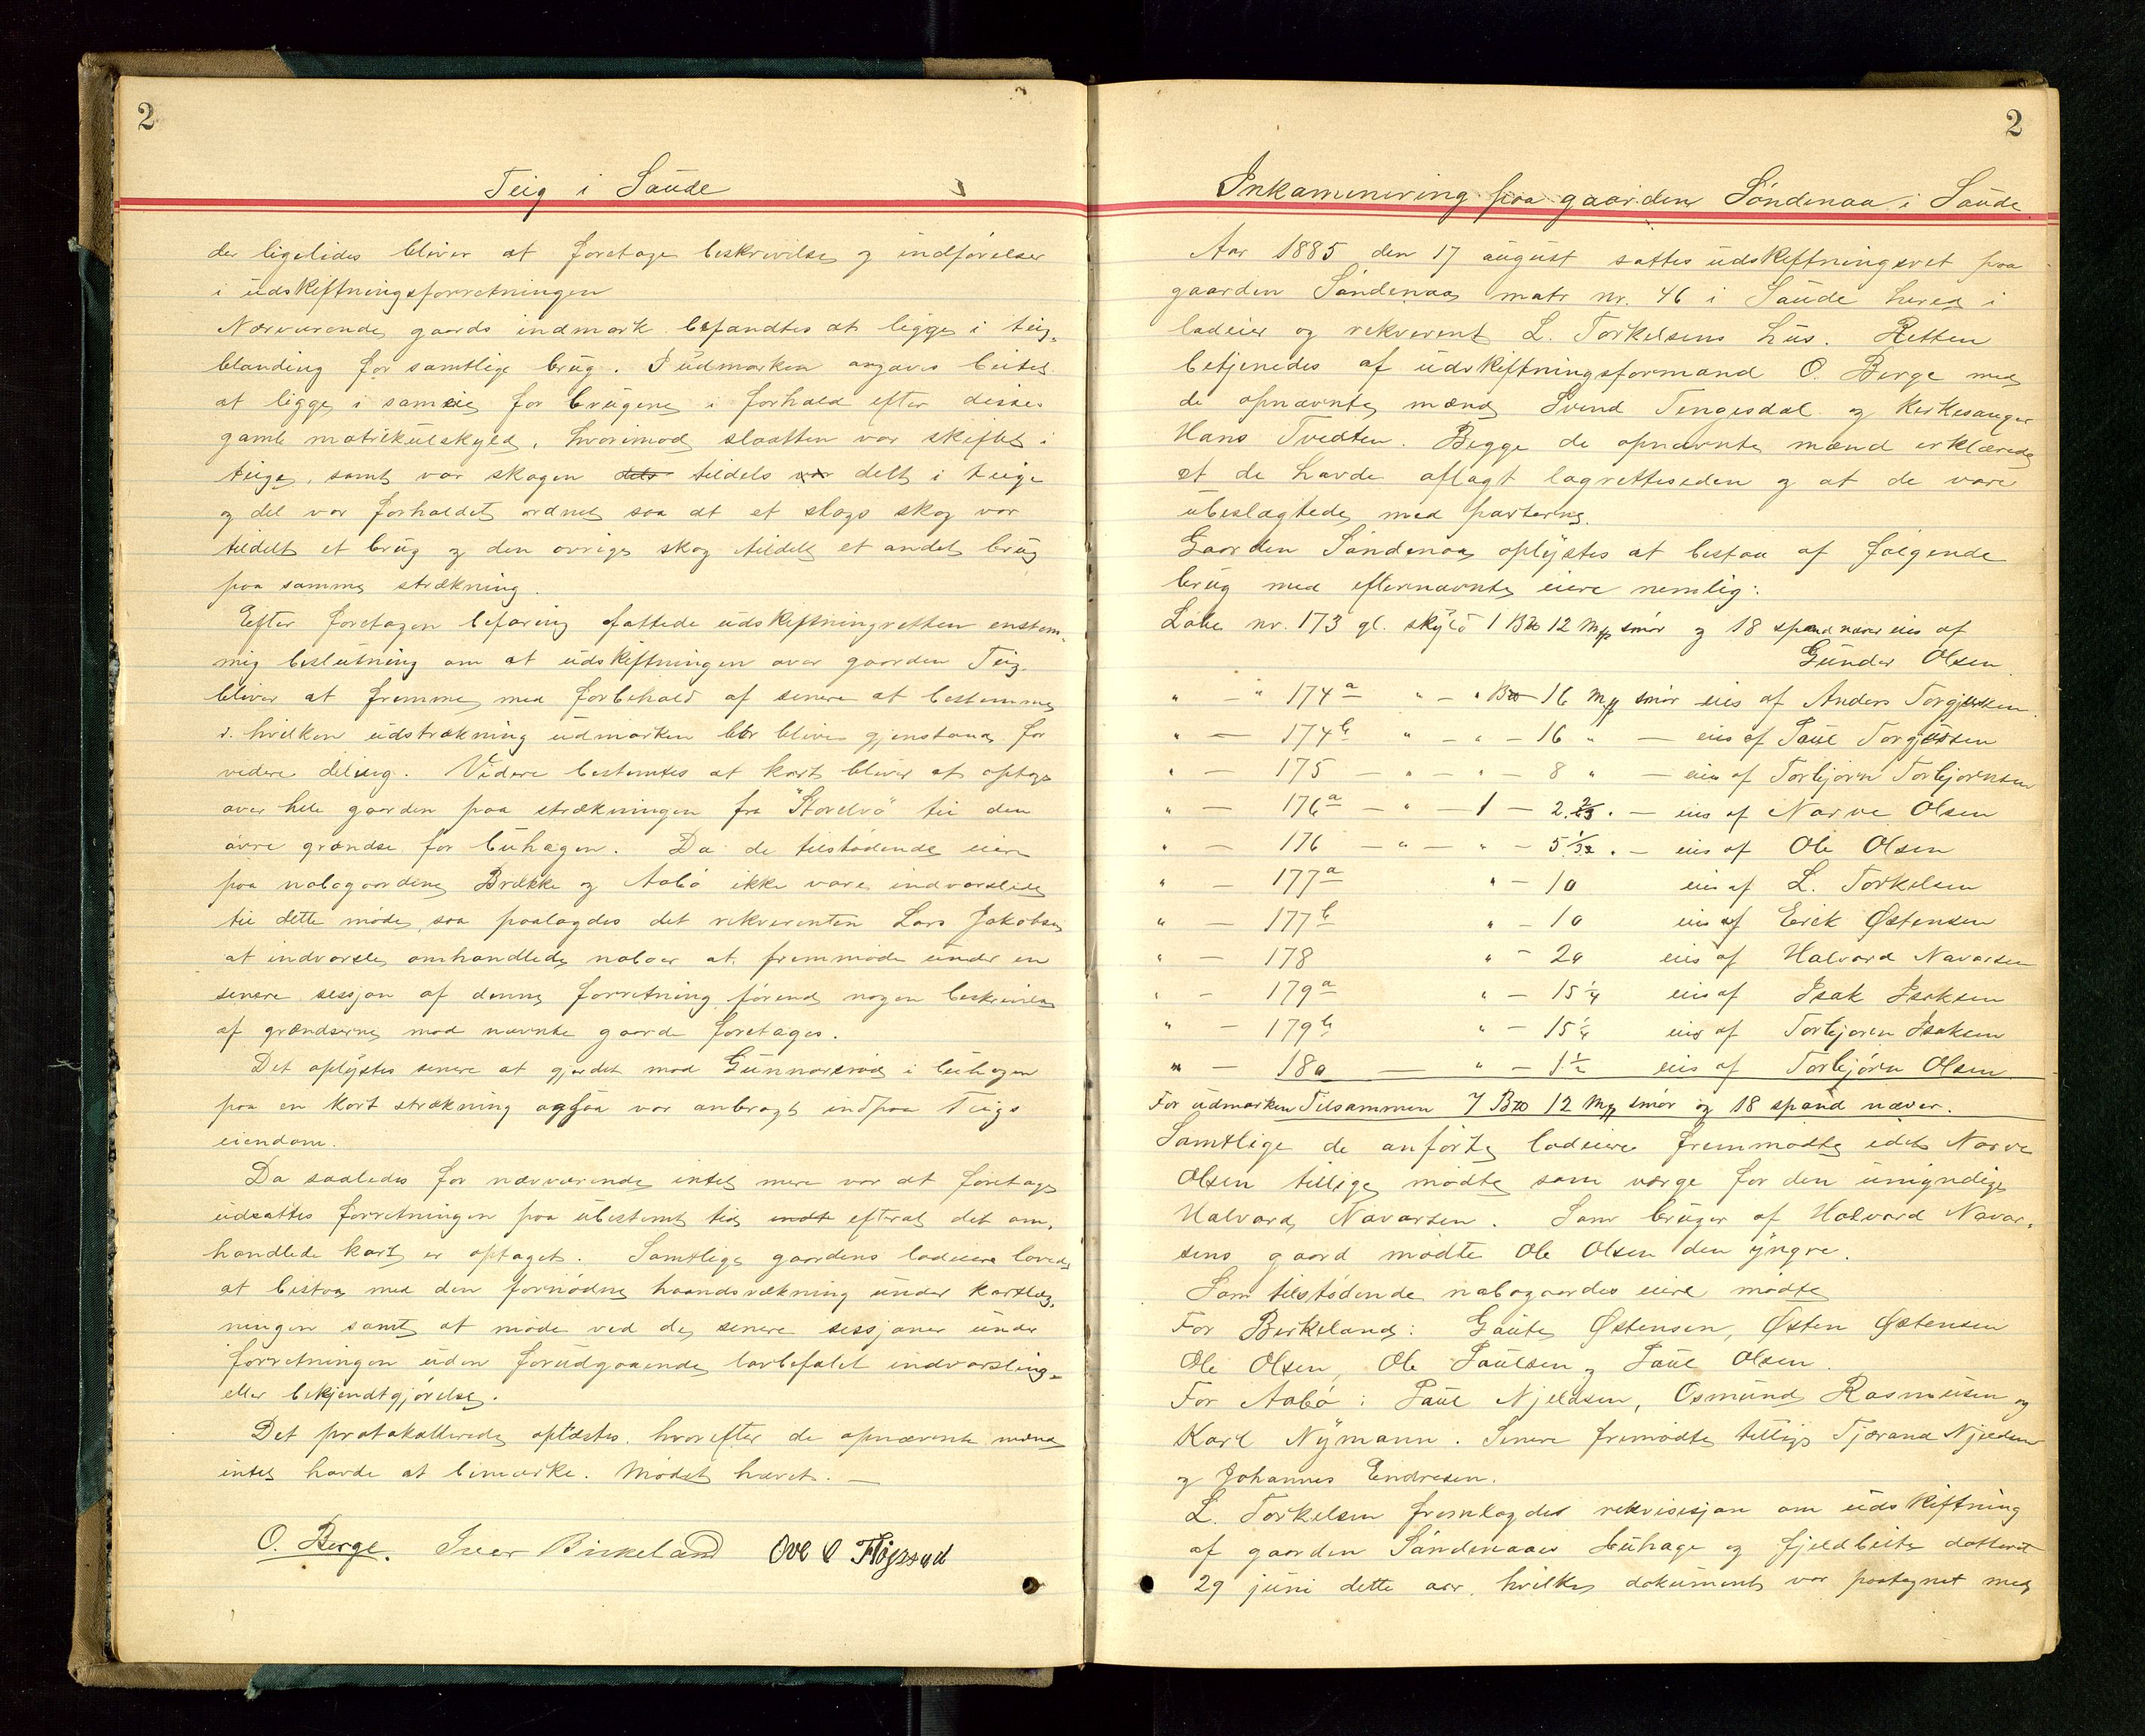 2
Teig i Saude
der ligeledes bliver at foretage beskrivelse og indførelser
i udskiftningsforretningen
Nærværende gaards indmark befandtes at ligge i teig-
blanding for samtlige brug. I udmarken angaves beitet
at ligge i sameie for brugene i forhold efter disses
gamle matrikulskyld, hvorimod slaatten var skiftet i
teige, samt var skogen tildels delt i teige
og del var forholdet ordnet saa at et slags skog var
tildelt et brug og den øvrige skog tildelt et andet brug
paa samme strækning.
Efter foretagen befaring fattede udskiftningsretten enstem-
mig beslutning om at udskiftningen over gaarden Teig
bliver at fremme med forbehold af senere at bestemme
i hvilken udstrækning udmarken bør blive gjenstand for
videre deling. Videre bestemtes at kart bliver at optage
over hele gaarden paa strækningen fra "Storelvø" til den
øvre grændse for buhagen. Da de tilstødende eiere
paa nabogaardene Brække og Aabø ikke vare indvarslede
til dette møde, saa paalagdes det rekvirenten Lars Jakobsen
at indvarsle omhandlede naboer at fremmøde under en
senere sessjon af denne forretning førend nogen beskrivelse
af grændserne mod nævnte gaarde foretages.
Det oplystes senere at gjerdet mod Gunnarsrød i buhagen
paa en kort strækning ogsaa var anbragt indpaa Teigs
eiendom.
Da saaledes for nærværende intet mere var at foretage
udsattes forretningen paa ubestemt tid efterat det om-
handlede kart er optaget. Samtlige gaardens lodeiere lovede
at bistaa med den fornødne haandsrækning under kartlæg-
ningen samt at møde ved de senere sessjoner under
forretningen uden forudgaaende lovbefalet indvarsling
eller bekjendtgjørelse.
Det protokollerede oplæstes hvorefter de opnævnte mænd
intet havde at bemærke. Mødet hævet. —
O. Berge. Iver Birkeland Ove O Fløgsad
2
Inkaminering paa gaarden Søndenaa i Saude
Aar 1885 den 17 august sattes udskiftningsret paa
gaarden Søndenaa matr nr. 46 i Saude hered i
lodeier og rekvirent L. Torkelsens hus. Retten
betjenedes af udskiftningsformand O. Berge med
de opnævnte mænd Svend Tengesdal og Kirkesanger
Hans Tvedten. Begge de opnævnte mænd erklærede
at de havde aflagt lagretteseden og at de vare
ubeslægtede med parterne.
Gaarden Søndenaa oplystes at bestaa af følgende
brug med efternævnte eiere nemlig:
Løbe nr. 173 gl. skyld 1 B 12 Mp smør og 18 spand næver eies af
Gunder Olsen
" - " 174 a " - " 16 Mp smør eies af Anders Torgjersen
" — 174 b " - " - 16 " — eies af Paul Torgersen
" — 175 - " - " - 8 " — eies af Torbjørn Torbjørnsen
" — 176 a - " - 1 - 2 2/3 " — eies af Narve Olsen
" — 176 - " - " - 5 1/3 " — eies af Ole Olsen
" — 177 a " - 10 eies af L. Torkelsen
" — 177 b " - 10 eies af Erick Østensen
" — 178 " - 20 eies af Halvard Navarsen
" — 179 a " - 15 1/4 eies af Isak Isaksen
" — 179 b " - 15 1/4 eies af Torbjørn Isaksen
" — 180 — " - 1 1/2 eies af Torbjørn Olsen
For udmarken Tilsammen 7 B 12 Mp smør og 18 spand næver.
Samtlige de anførte lodeiere fremmødte idet Narve
Olsen tillige mødte som værge for den umyndige
Halvard Navarsen. Som bruger af Halvard Navar-
sens gaard mødte Ole Olsen den yngre.
Som tilstødende nabogaardes eiere mødte
For Birkeland: Gaute Østensen, Østen Østensen
Ole Olsen, Ole Paulsen og Paul Olsen.
For Aabø: Paul Njeldsen, Osmund Rasmusen og
Karl Nymann. Senere fremødte tillige Tjærand Njeldsen
og Johannes Endresen.
L. Torkelsen fremlagdes rekvisisjon om udskiftning
af gaarden Søndenaaes buhage og fjeldbeite datteret
29 juni dette aar, hvilket dokument var paategnet med